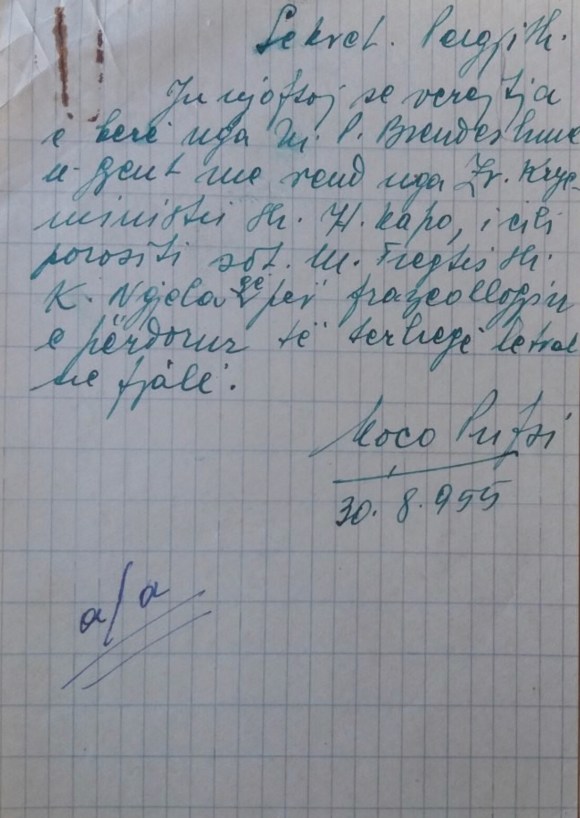 Sekret. Pergjith.
Ju njoftoj se verejtja
e bere nga M. P. Brendeshme
u gjent me vend nga Zv. Krye-
ministri sh. H. Kapo, i cili
porositi sot. M. Tregtis sh.
K. Ngjela që për frazeollogjin
e përdorur të terheqë letrat
në fjalë.
Koço Prifti
30. 8. 955
a/a